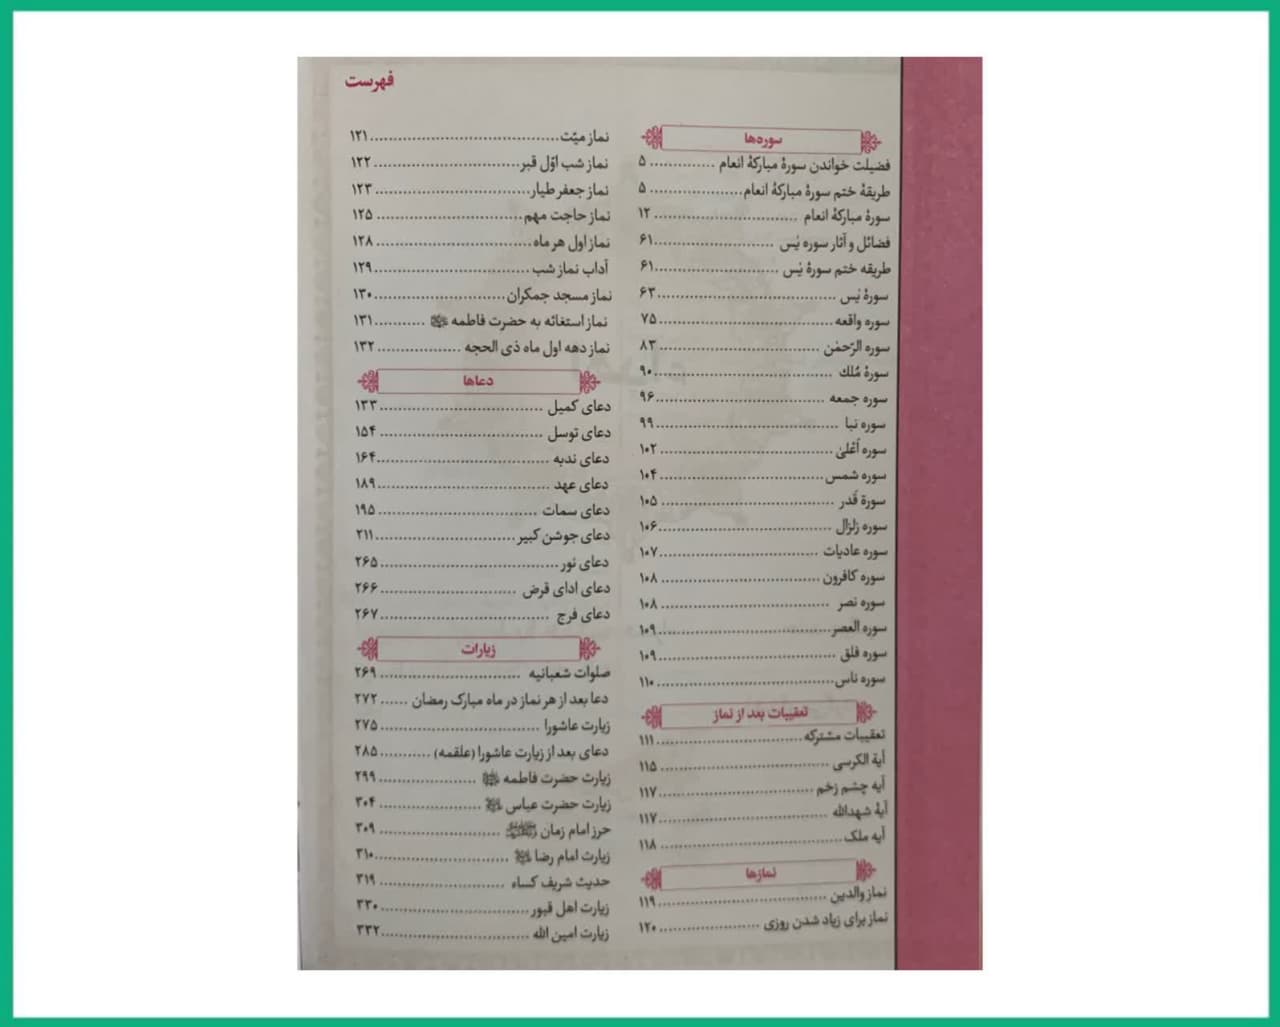 فهرست
سوره‌ها
فضیلت خواندن سورۀ مبارکۀ انعام ............ ۵
طریقۀ ختم سورۀ مبارکۀ انعام ............ ۵
سورۀ مبارکۀ انعام ............ ۱۲
فضائل و آثار سوره یٰس ............ ۶۱
طریقه ختم سورۀ یٰس ............ ۶۱
سورۀ یٰس ............ ۶۳
سوره واقعه ............ ۷۵
سوره الرّحمٰن ............ ۸۳
سورۀ مُلك ............ ۹۰
سوره جمعه ............ ۹۶
سوره نبا ............ ۹۹
سوره أعْلیٰ ............ ۱۰۲
سوره شمس ............ ۱۰۴
سورۀ قَدر ............ ۱۰۵
سوره زلزال ............ ۱۰۶
سوره عادیات ............ ۱۰۷
سوره کافرون ............ ۱۰۸
سوره نصر ............ ۱۰۸
سوره العصر ............ ۱۰۹
سوره فلق ............ ۱۰۹
سوره ناس ............ ۱۱۰
تعقیبات بعد از نماز
تعقیبات مشترکه ............ ۱۱۱
آیة الکرسی ............ ۱۱۵
آیه چشم زخم ............ ۱۱۷
آیۀ شهدالله ............ ۱۱۷
آیه ملک ............ ۱۱۸
نمازها
نماز والدین ............ ۱۱۹
نماز برای زیاد شدن روزی ............ ۱۲۰
نماز میّت ............ ۱۲۱
نماز شب اوّل قبر ............ ۱۲۲
نماز جعفر طیار ............ ۱۲۳
نماز حاجت مهم ............ ۱۲۵
نماز اول هر ماه ............ ۱۲۸
آداب نماز شب ............ ۱۲۹
نماز مسجد جمکران ............ ۱۳۰
نماز استغاثه به حضرت فاطمه ............ ۱۳۱
نماز دهه اول ماه ذی الحجه ............ ۱۳۲
دعاها
دعای کمیل ............ ۱۳۳
دعای توسل ............ ۱۵۴
دعای ندبه ............ ۱۶۴
دعای عهد ............ ۱۸۹
دعای سمات ............ ۱۹۵
دعای جوشن کبیر ............ ۲۱۱
دعای نور ............ ۲۶۵
دعای ادای قرض ............ ۲۶۶
دعای فرج ............ ۲۶۷
زیارات
صلوات شعبانیه ............ ۲۶۹
دعا بعد از هر نماز در ماه مبارک رمضان ...... ۲۷۲
زیارت عاشورا ............ ۲۷۵
دعای بعد از زیارت عاشورا (علقمه) ............ ۲۸۵
زیارت حضرت فاطمه ............ ۲۹۹
زیارت حضرت عباس ............ ۳۰۴
حرز امام زمان ............ ۳۰۹
زیارت امام رضا ............ ۳۱۰
حدیث شریف کساء ............ ۳۱۹
زیارت اهل قبور ............ ۳۳۰
زیارت امین الله ............ ۳۳۲